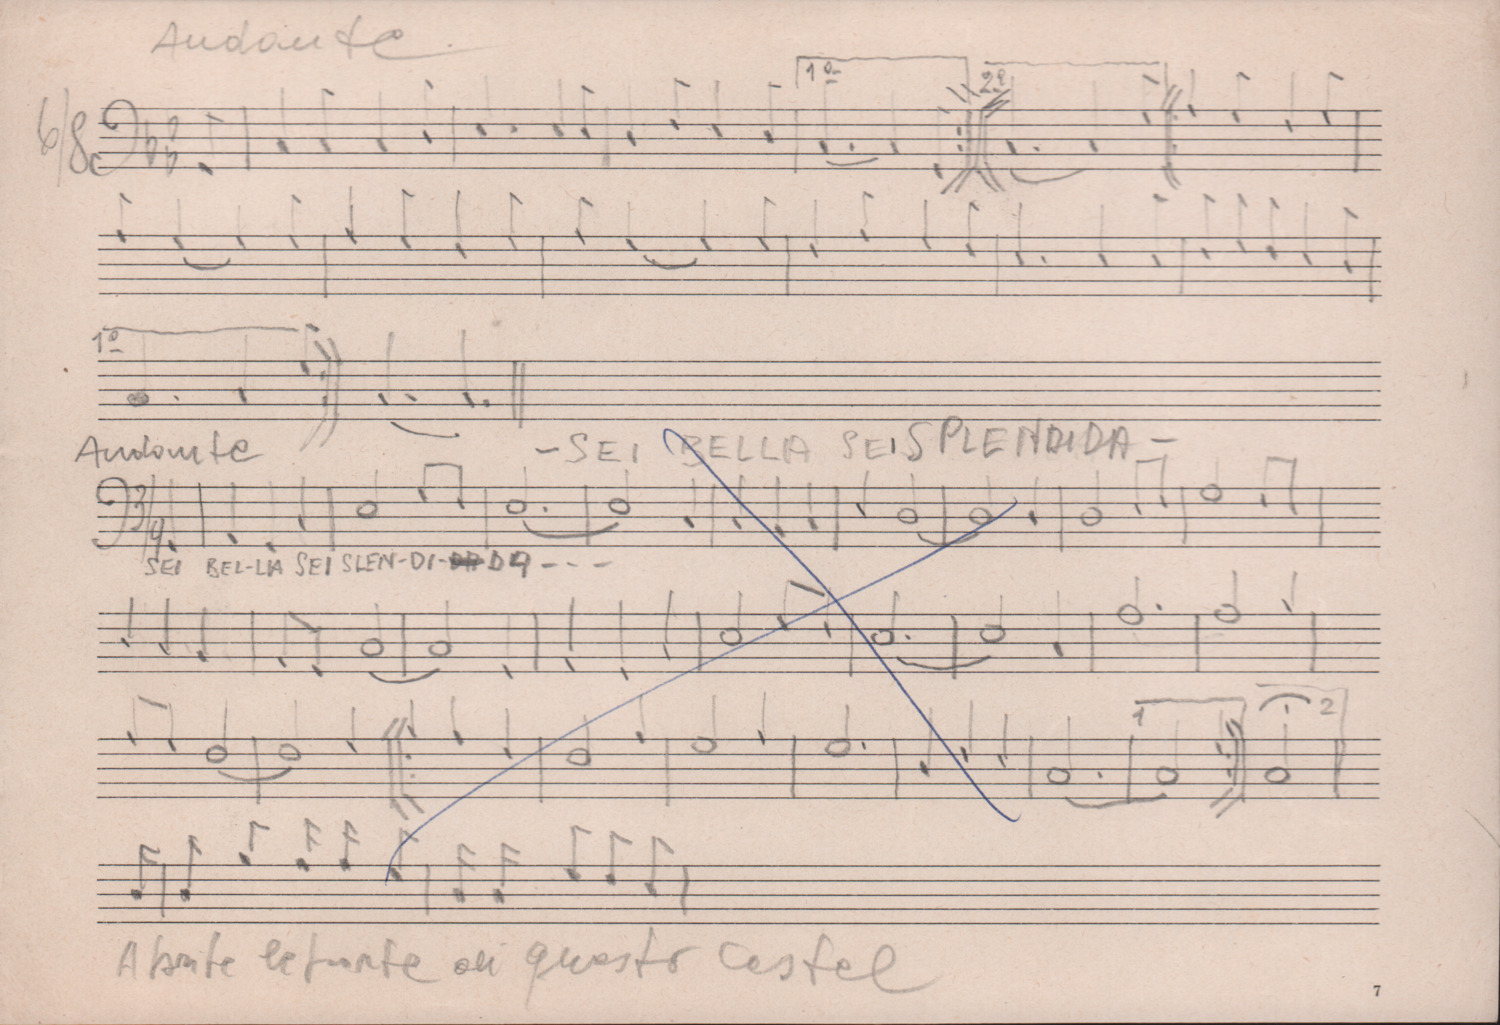 Andante.
6/8
1º 2º
1º
Andante
- SEI BELLA SEI SPLENDIDA -
3/4
SEI BEL-LA SEI SLEN-DI- DA - - -
1 2
di questo Castel
7